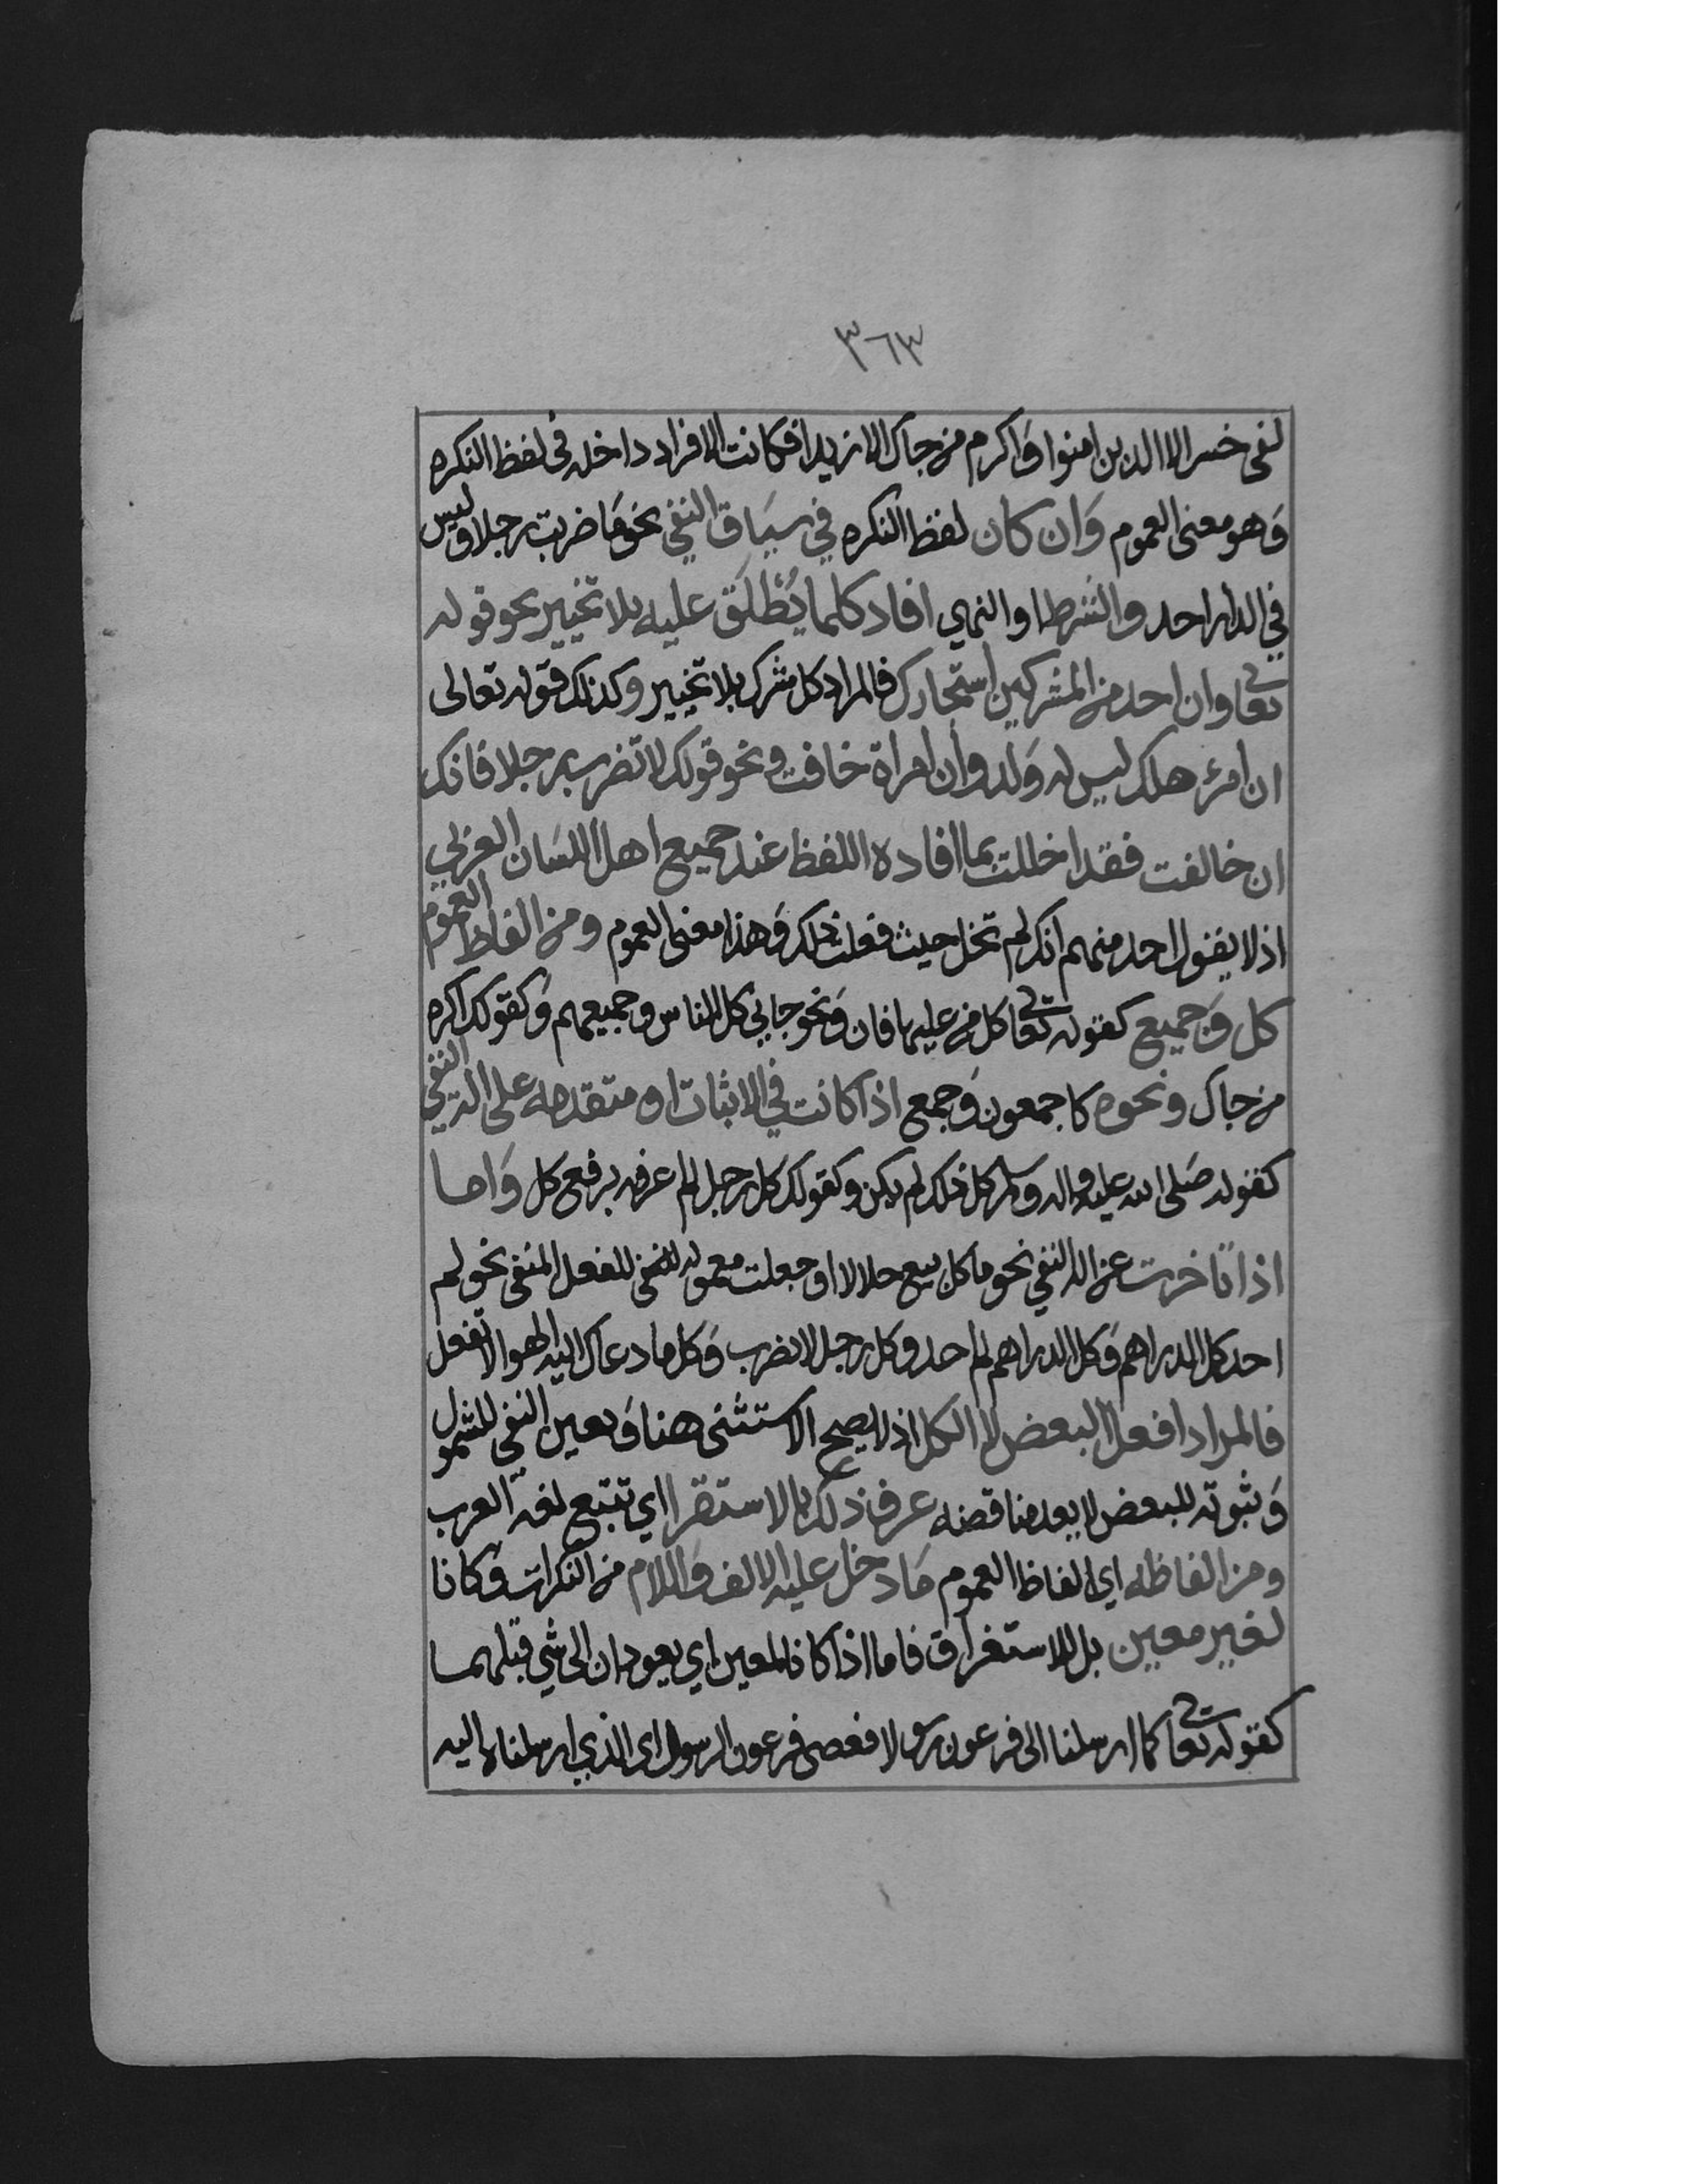 ٣٦٣
لفي خسر الا الذين امنوا واكرم من جاك الا زيدا فكانت الافراد داخله في لفظ النكره
وهو معنى العموم وان كان لفظ النكره في سياق النفي نحو ما ضربت رجلا وليس
في الدار احد والشرط او النهي افاد كلما يُطْلَق عليه بلا تخيير نحو قوله
تعالى وان احد من المشركين استجارك فالمراد كل مشرك بلا تخيير وكذلك قوله تعالى
ان امرؤ هلك ليس له ولد وان امراة خافت ونحو قولك لا تضرب رجلا فانك
ان خالفت فقد اخللت بما افاده اللفظ عند جميع اهل اللسان العربي
اذ لا يقول احد منهم انك لم تخل حيث فعلت ذلك وهذا معنى العموم ومن الفاظ العموم
كل وجميع كقوله تعالى كل من عليها فان ونحو جاني كل الناس وجميعهم وكقولك اكرم
من جاك ونحوه كاجمعون وجمع اذا كانت في الاثبات او متقدمه على اله النفي
كقوله صلى الله عليه واله وسلم كل ذلك لم يكن وكقولك كل رجل لم اعرفه برفع كل واما
اذا تاخرت عن اله النفي نحو ما كل بيع حلالا او جعلت معموله للفعل المنفي نحو لم
اخذ كل الدراهم وكل الدراهم لم اخذ وكل رجل لا تضرب وكل ما دعاك اليه الهوا لا تفعل
فالمراد افعل البعض لا الكل اذ لا يصح الاستثنى هنا وتعين النفي للشمول
وثبوته للبعض لا يعد مناقضه عرف ذلك بالاستقرا اي تتبع لغة العرب
ومن الفاظه اي الفاظ العموم ما دخل عليه الالف واللام من النكرات وكانا
لغير معين بل للاستغراق فاما اذا كانا لمعين اي يعودان الى شي قبلهما
كقوله تعالى كما ارسلنا الى فرعون رسولا فعصى فرعون الرسول اي الذي ارسلناه اليه